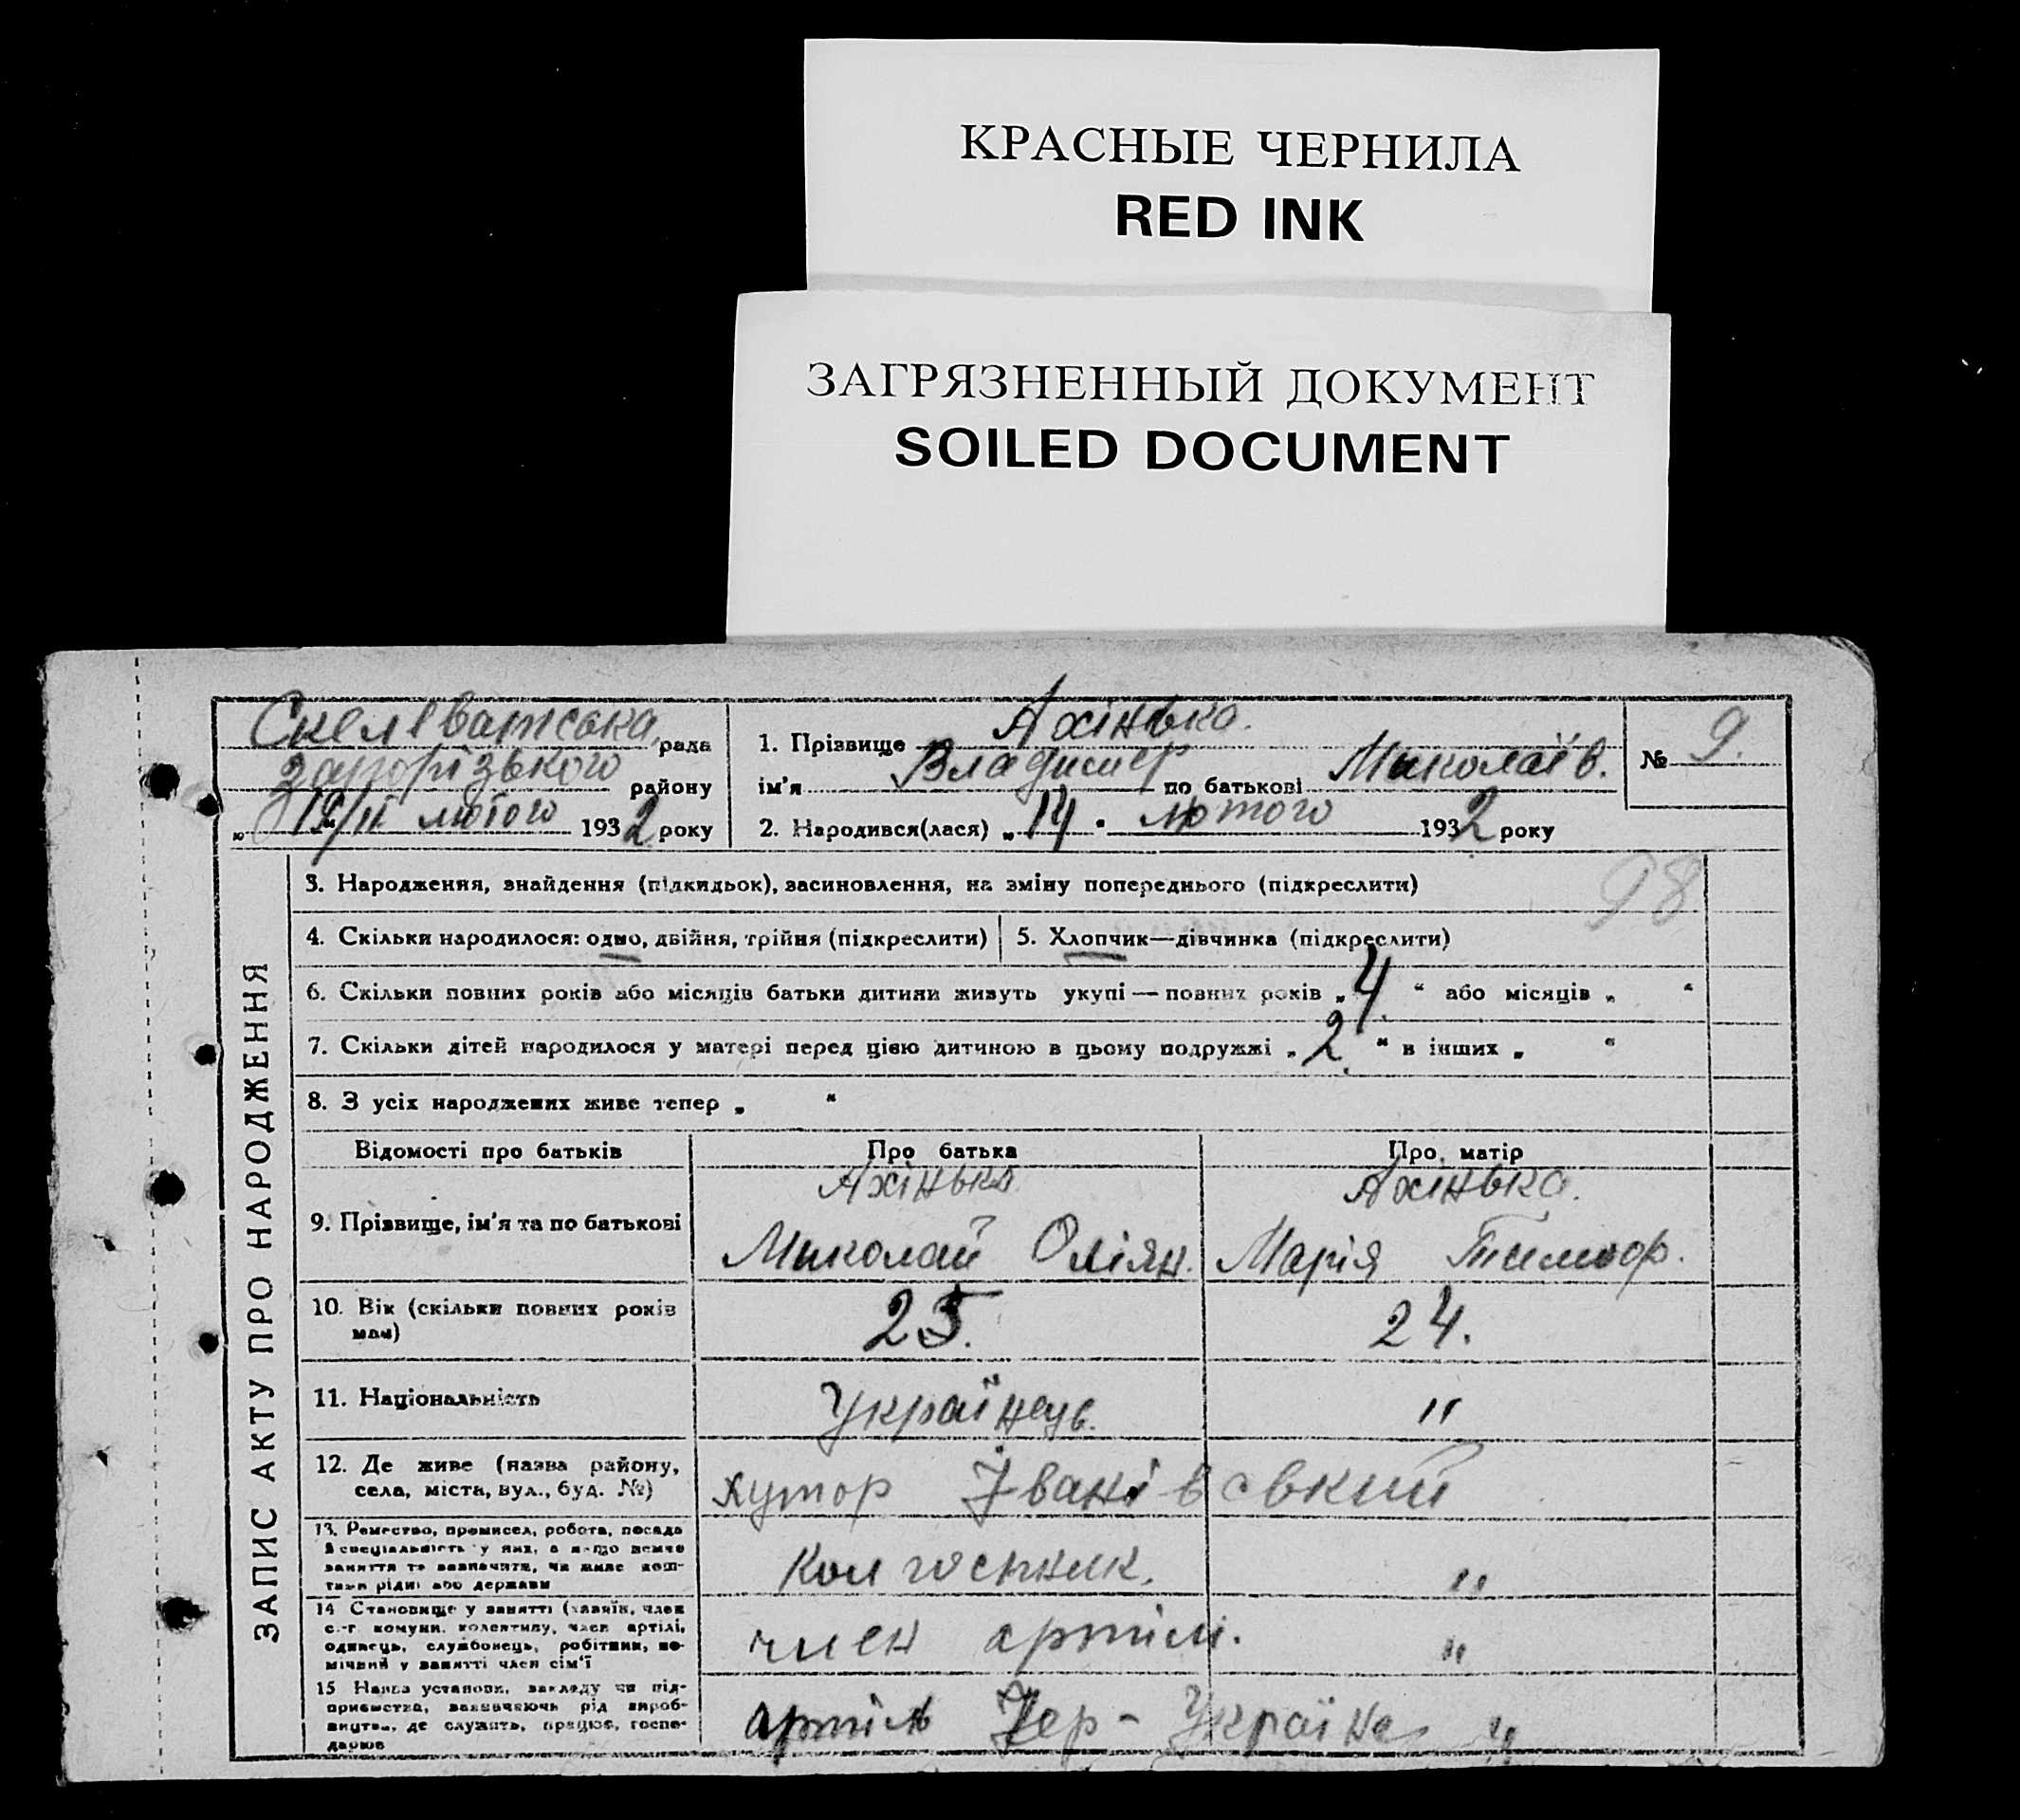 КРАСНЫЕ ЧЕРНИЛА
RED INK
ЗАГРЯЗНЕННЫЙ ДОКУМЕНТ
SOILED DOCUMENT
Скелеватська рада
запорізького району
„19/II лютого 1932 року
1. Прізвище Ахінько.
ім'я Владимер по батькові Миколаїв.
2. Народився(лася) „14 " лютого 1932 року
№ 9.
98
ЗАПИС АКТУ ПРО НАРОДЖЕННЯ
3. Народження, знайдення (підкидьок), засиновлення, на зміну попереднього (підкреслити)
4. Скільки народилося: одно, двійня, трійня (підкреслити) 5. Хлопчик—дівчинка (підкреслити)
6. Скільки повних років або місяців батьки дитини живуть укупі — повних років „4“ або місяців „ “
7. Скільки дітей народилося у матері перед цією дитиною в цьому подружжі „2“ в інших „ “
8. З усіх народжених живе тепер „ “
Відомості про батьків Про батька Про матір
9. Прізвище, ім'я та по батькові Ахінько Миколай Оліян. Ахінько. Марія Тимоф.
10. Вік (скільки повних років мав) 25. 24.
11. Національність Українець. "
12. Де живе (назва району, села, міста, вул., буд. №) хутор Іванівський
13. Ремество, промисел, робота, посада й спеціальність у них, а якщо немає заняття то зазначити, чи живе коштами рідні або держави Колгоспник. "
14 Становище у занятті (хазяїн, член с.-г. комуни, колективу, член артілі, одинець, службовець, робітник, помічний у занятті член сім'ї член артілі. "
15 Назва установи, закладу чи підприємства, зазначаючи рід виробництва, де служить, працює, господарює артіль Чер-Україна "